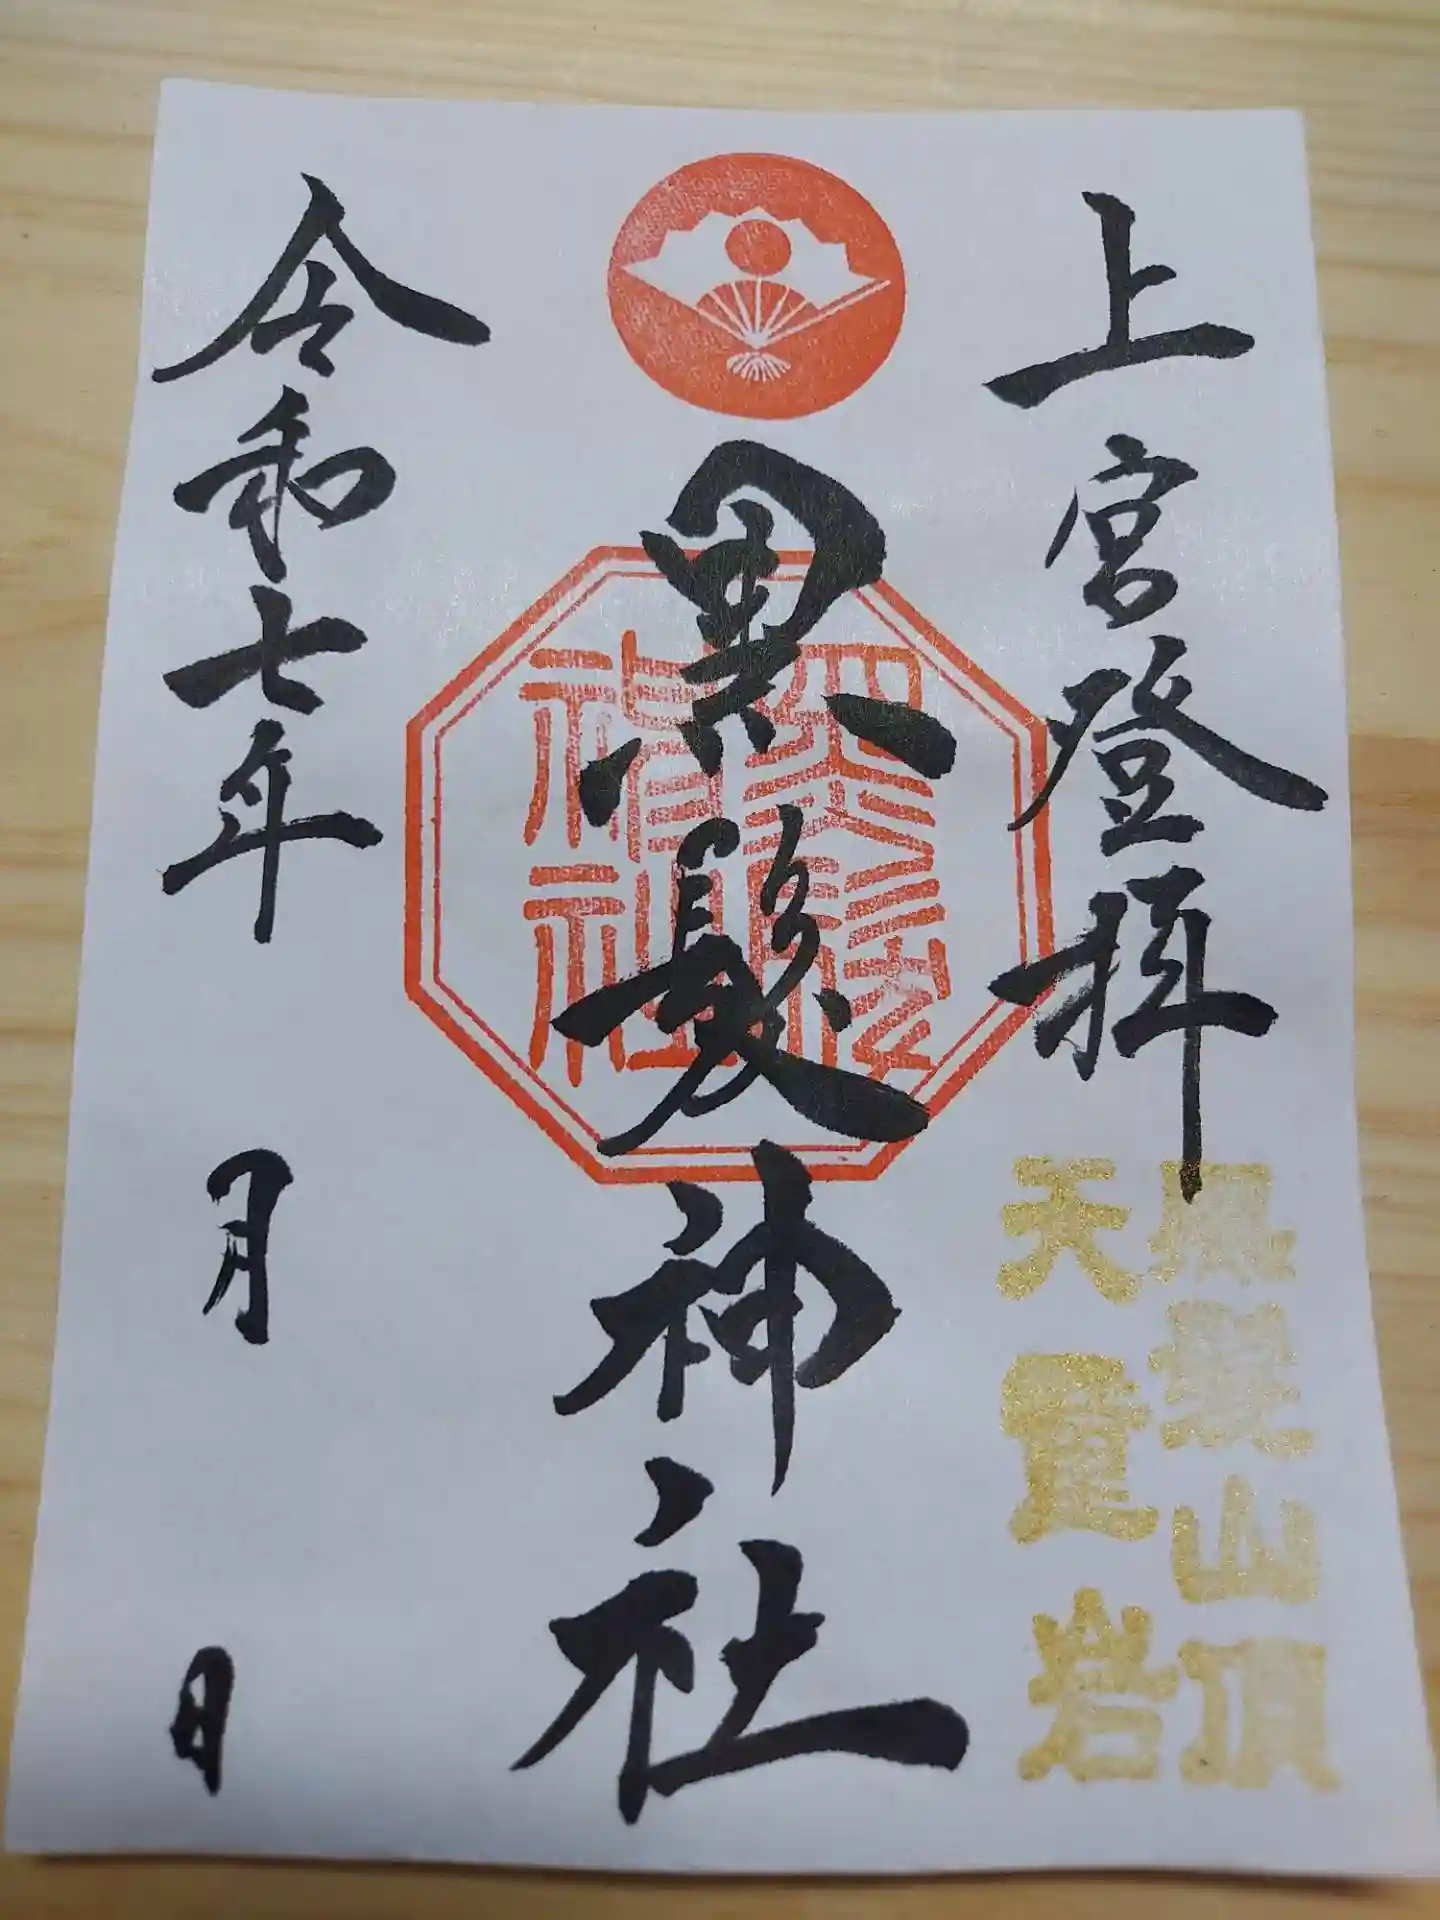 上宮登拝
黒髪山頂
天童岩
黒髪神社
令和七年 月 日